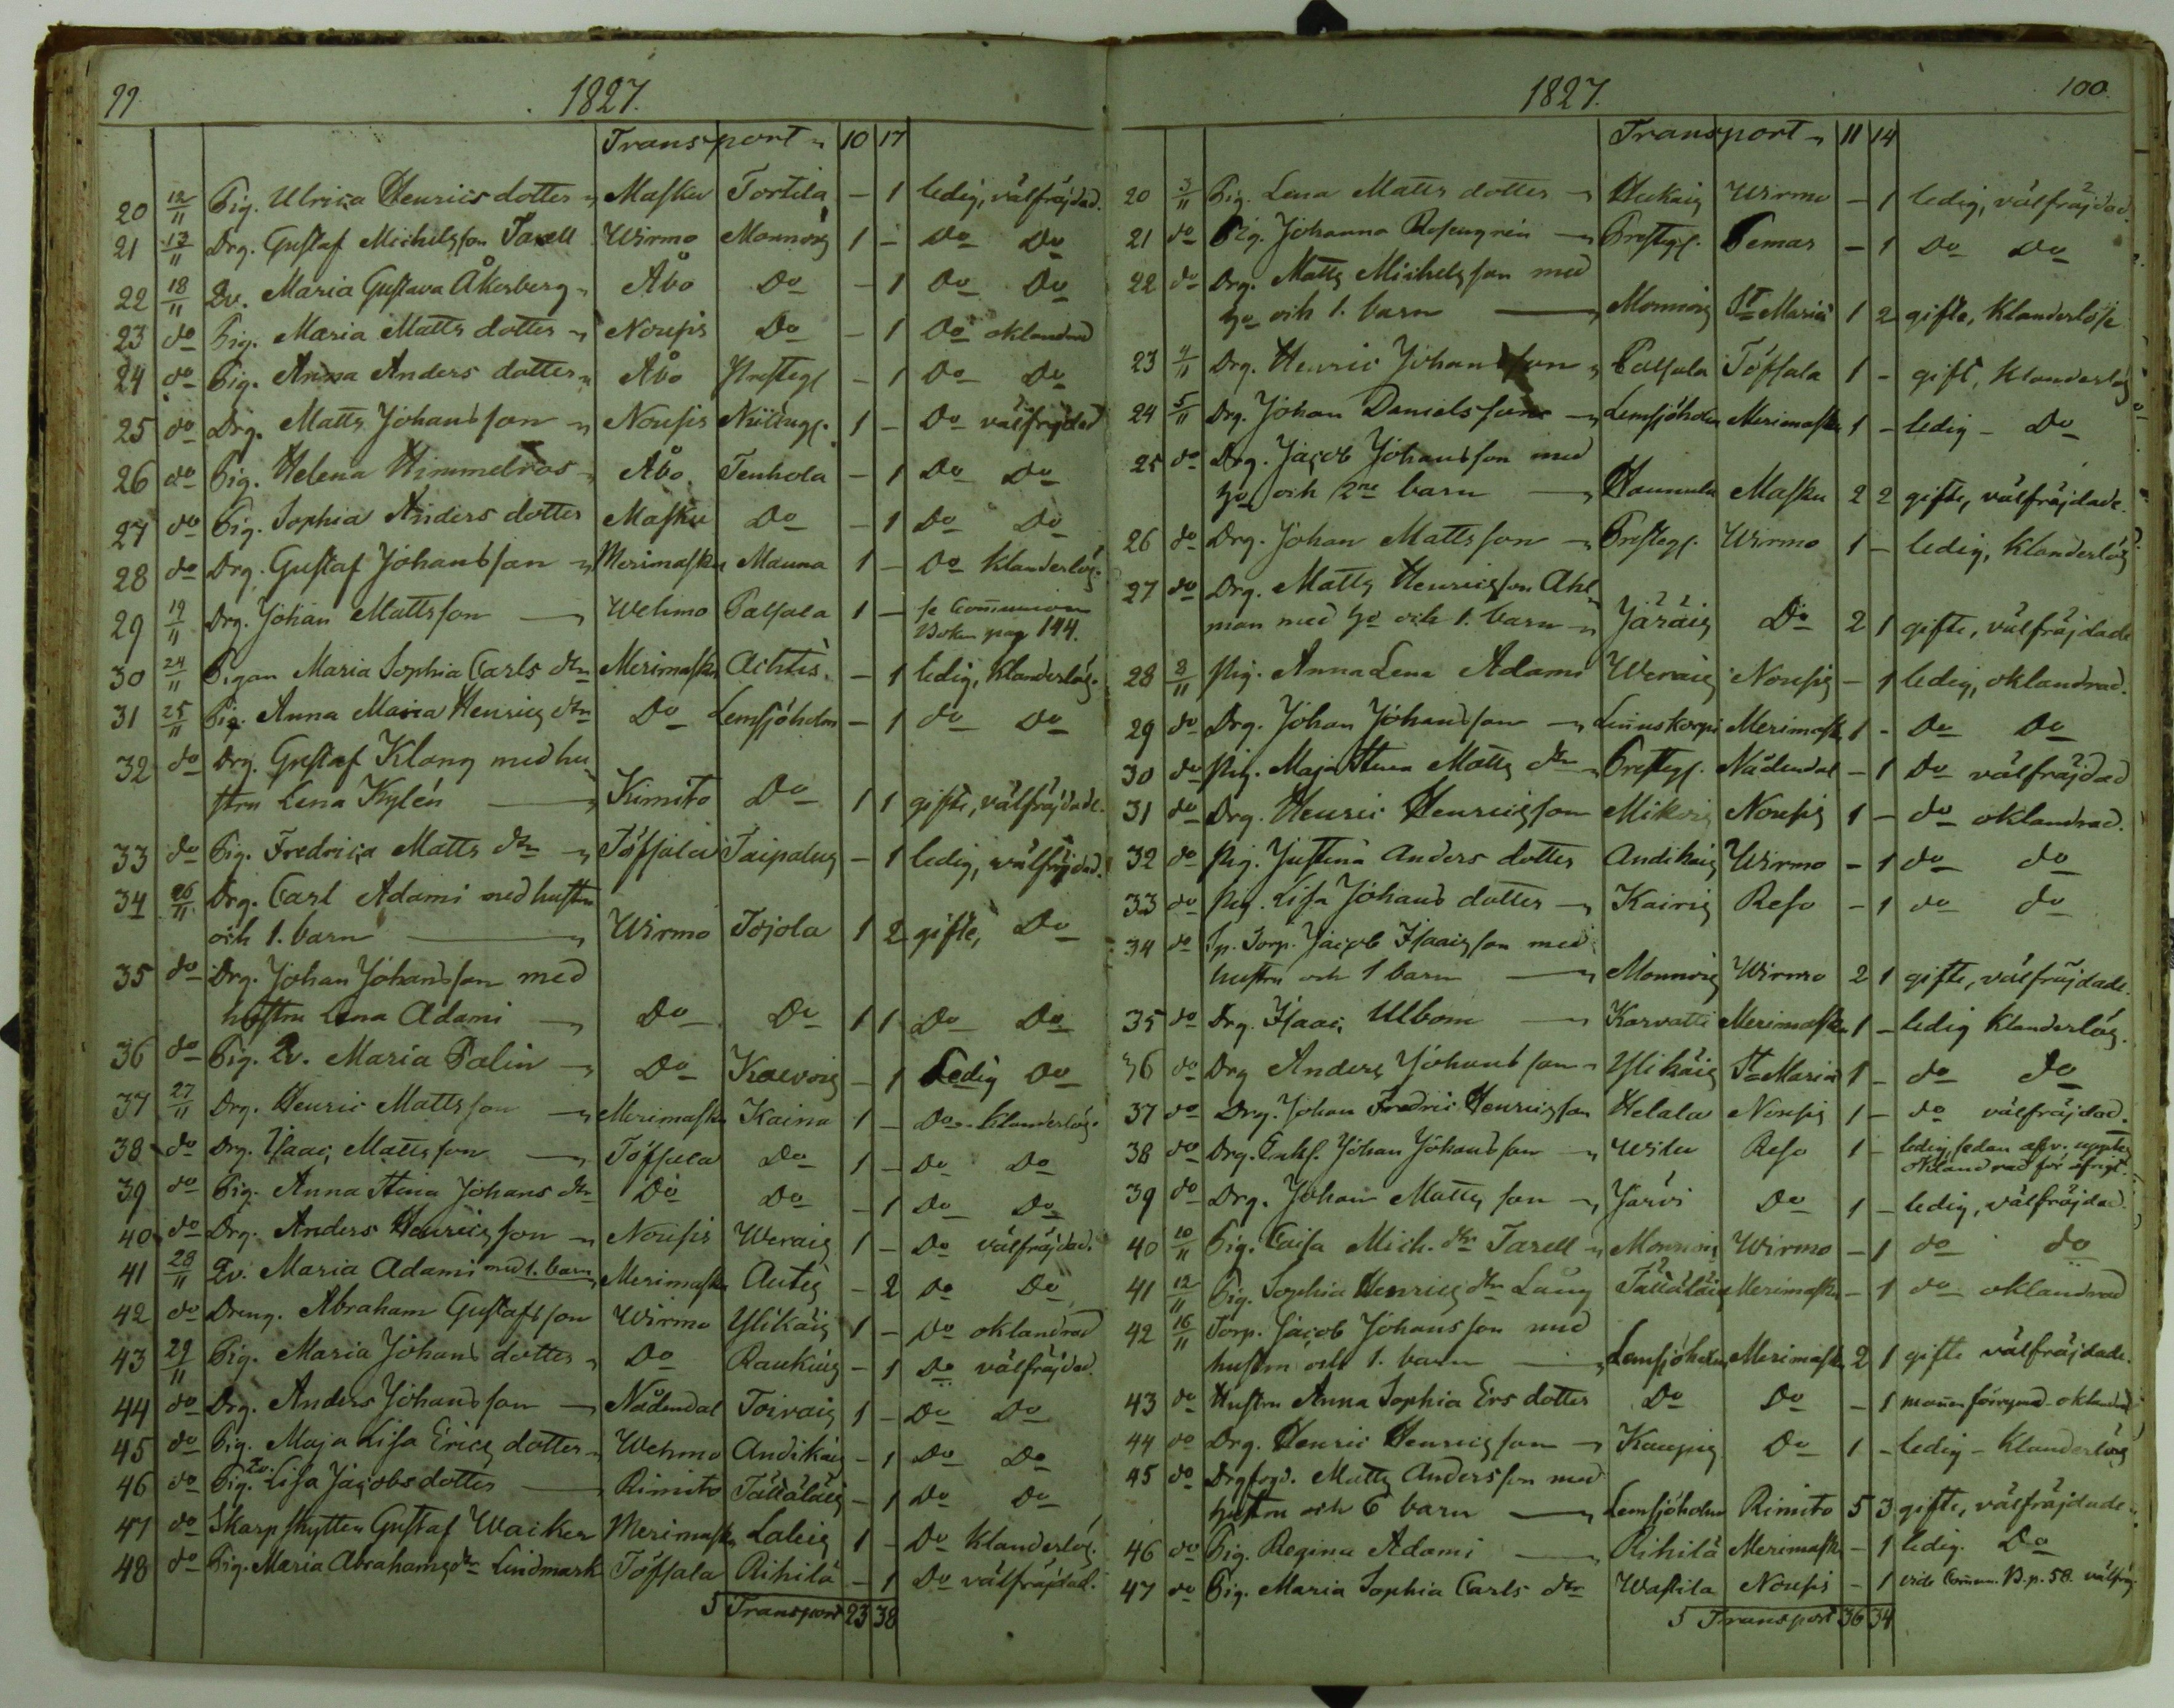 99. 1827.
Transport 10 17
20 12/11 Pig. Ulrica Henrics dotter Masku Tortila - 1 ledig, välfräjdad.
21 13/11 Drg. Gustaf Michelsson Tarell Wirmo Monnois 1 - Do Do
22 18/11 Qv. Maria Gustava Åkerberg Åbo Do - 1 Do Do
23 do Pig. Maria Matts dotter Nousis Do - 1 Do oklandrad
24 do Pig. Anna Anders dotter Åbo Presteg. - 1 Do Do
25 do Drg. Matts Johansson Nousis 1 - Do välfräjdad
26 do Pig. Helena Himmelroos Åbo Tenhola - 1 Do Do
27 do Pig. Sophia Anders dotter Masku Do - 1 Do Do
28 do Drg. Gustaf Johansson Merimasku Mauna 1 - Do klanderlös.
29 19/11 Drg. Johan Mattsson Wehmo Palsala 1 - se Communion
Boken pag 144.
30 24/11 Pigan Maria Sophia Carls dtr Merimasku Achtis. - 1 ledig, klanderlös.
31 25/11 Pig. Anna Maria Henrics dtr Do Lemsjöholm - 1 do Do
32 do Drg. Gustaf Klang med hu
stru Lena Kylén Kimito Do 1 1 gifte, välfräjdade.
33 do Pig. Fredrica Matts dtr Töfsala Taipalus - 1 ledig, välfräjdad.
34 26/11 Drg. Carl Adami med hustru
och 1. barn Wirmo Tojola 1 2 gifte, Do
35 do Drg. Johan Johansson med
hustru Lena Adami Do Do 1 1 Do Do
36 do Pig. Qv. Maria Palin Do - 1 Ledig Do
37 27/11 Drg. Henric Mattsson Merimasku Kaina 1 - Do klanderlös.
38 do Drg. Isaac Mattsson Töfsala Do 1 - Do Do
39 do Pig. Anna Stina Johans dtr Do Do - 1 Do Do
40 do Drg. Anders Henricsson Nousis Werais 1 - Do välfräjdad.
41 28/11 Qv. Maria Adami med 1. barn Merimasku Autis - 2 Do Do
42 do Dreng. Abraham Gustafsson Wirmo Ylikäis 1 - Do oklandrad
43 29/11 Pig. Maria Johans dotter Do Raukais - 1 Do välfräjdad.
44 do Drg. Anders Johansson Nådendal Toivais 1 - Do Do
45 do Pig. Maja Lisa Erics dotter Wehmo Andikais - 1 Do Do
46 do Pig. Qv. Lisa Jacobs dotter Rimito - 1 Do Do
47 do Skarpskytten Gustaf Waiker Merimasku Laleis 1 - Do klanderlös.
48 do Pig. Maria Abrahams dtr Lindmark Töfsala Rihilä - 1 Do välfräjdad.
Transport 23 38
1827. 100.
Transport 11 14
20 3/11 Pig. Lena Matts dotter Wirmo - 1 ledig, välfräjdad.
21 do Pig. Johanna Rosengrén Presteg. Pemar - 1 Do Do
22 do Drg. Matts Michelsson med
Ho och 1. barn Monnois St Marie 1 2 gifte, klanderlöse
23 4/11 Drg. Henric Johansson Palsala Töfsala 1 - gift, klanderlös
24 5/11 Drg. Johan Danielsson Lemsjöholm Merimasku 1 - ledig - Do
25 do Drg. Jacob Johansson med
Ho och 2ne barn Hannula Masku 2 2 gifte, välfräjdade.
26 do Drg. Johan Mattsson Presteg. Wirmo 1 - ledig, klanderlös
27 do Drg. Matts Henricsson Ahl
man med Ho och 1. barn Järäis Do 2 1 gifte, välfräjdade
28 8/11 Pig. Anna Lena Adami Werais Nousis - 1 ledig, oklandrad.
29 do Drg. Johan Johansson Linnuskorpi Merimask. 1 - Do Do
30 do Pig. Maja Stina Matts dtr Presteg. Nådendal - 1 Do välfräjdad
31 do Drg. Henric Henricsson Mikois Nousis 1 - do oklandrad.
32 do Pig. Justina Anders dotter Andikais Wirmo - 1 do do
33 do Pig. Lisa Johans dotter Kairis Reso - 1 do do
34 do Sp. Torp. Jacob Isaacsson med
hustru och 1 barn Monnois Wirmo 2 1 gifte, välfräjdade.
35 do Drg. Isaac Ulbom Karvatti Merimasku 1 - ledig klanderlös.
36 do Drg Anders Johansson Ylikäis St Marie 1 - do do
37 do Drg. Johan Fredric Henricsson Helala Nousis 1 - do välfräjdad.
38 do Drg. Enkl. Johan Johansson Wilu Reso 1 - ledig sedan
oklandrad för öfrigt.
39 do Drg. Johan Mattsson Järvi Do 1 - ledig, välfräjdad.
40 10/11 Pig. Caisa Mich. dtr Tarell Monnois Wirmo - 1 do do
41 12/11 Pig. Sophia Henrics dtr Lang Merimasku - 1 do oklandrad
42 16/11 Torp. Jacob Johansson med
hustru och 1. barn Lemsjöholm Merimasku 2 1 gifte välfräjdade.
43 do Hustru Anna Sophia Ers dotter Do Do - 1 mannen förrymd oklandrad
44 do Drg. Henric Henricsson Kaupis Do 1 - ledig - klanderlös
45 do Drgfogd. Matts Andersson med
hustru och 6 barn Lemsjöholm Rimito 5 3 gifte, välfräjdade.
46 do Pig. Regina Adami Rihilä Merimask. - 1 ledig. Do
47 do Pig. Maria Sophia Carls dtr Wastila Nousis - 1 vide Comun. B. p. 58. välfräj.
Transport 36 34